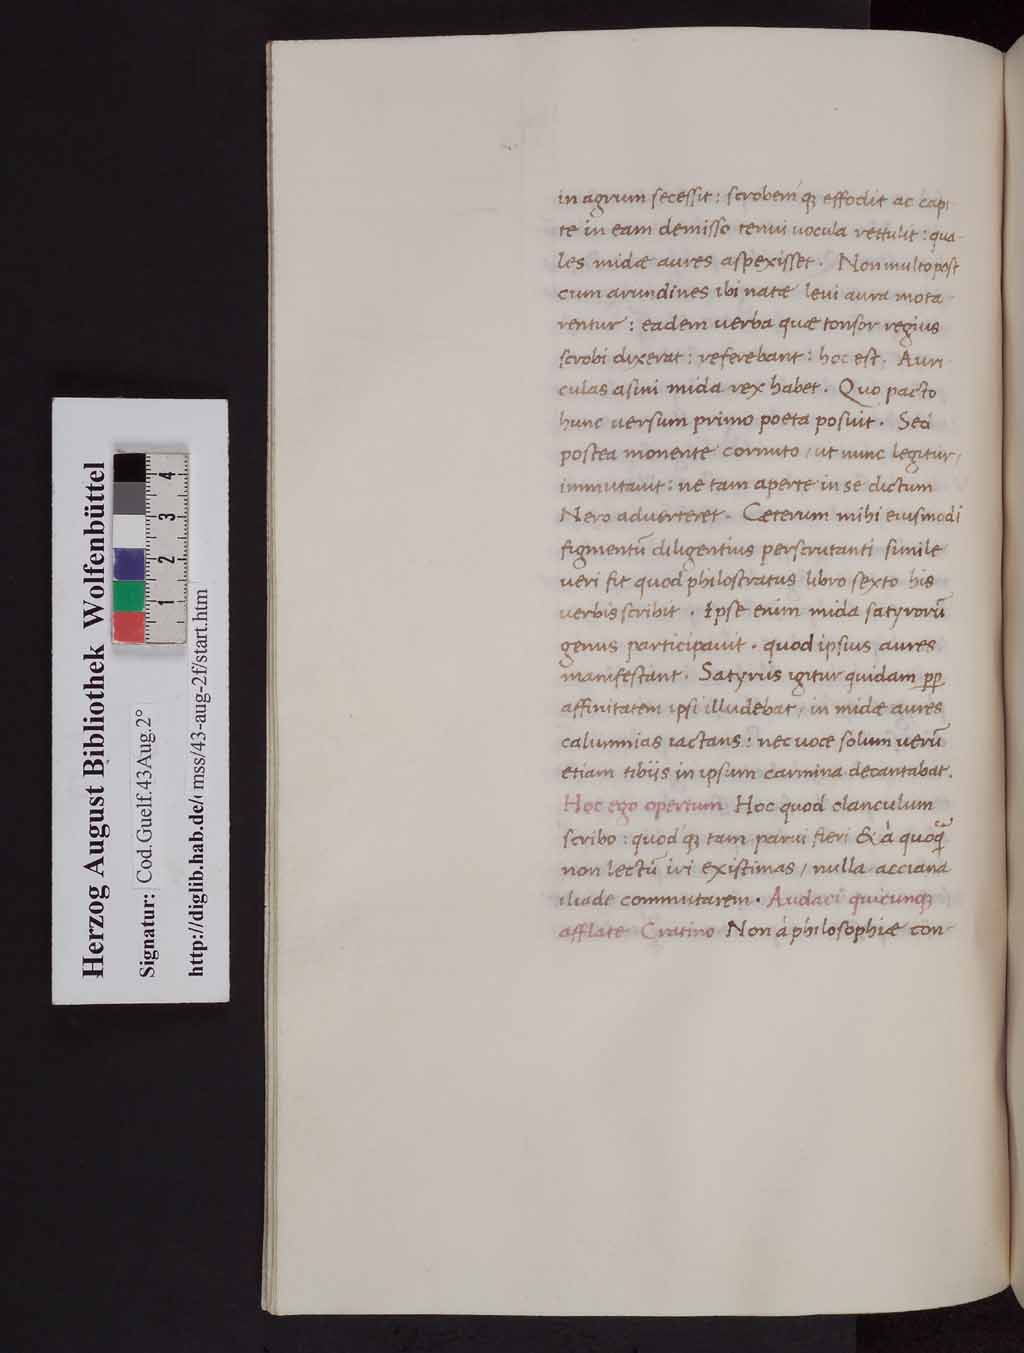 in agrum secessit: scrobem q; effodit ac capi
te in eam demisso tenui uocula rettulit: qua-
les midæ aures aspexisset. Non multo post
cum arundines ibi natæ leui aura mota-
rentur: eadem uerba quæ tonsor regius
scrobi dixerat: referebant: hoc est. Auri
culas asini mida rex habet. Quo pacto
hunc uersum primo poeta posuit. Sed
postea monente cornuto / ut nunc legitur /
immutauit: ne tam aperte in se dictum
Nero aduerteret. Cæterum mihi eiusmodi
figmentū diligentius perscrutanti simile
ueri fit quod philostratus libro sexto his
uerbis scribit. Ipse enim mida satyrorū
genus participauit. quod ipsius aures
manifestant. Satyrus igitur quidam pp
affinitatem ipsi illudebat / in midæ aures
calumnias iactans: nec uoce solum uerū
etiam tibijs in ipsum carmina decantabat.
Hoc ego opertum Hoc quod clanculum
scribo: quod q; tam parui fieri & à quoq̄
non lectū iri existimas / nulla acciana
iliade commutarem. Audaci quicunq;
afflate Cratino Non à philosophiæ con-
Herzog August Bibliothek Wolfenbüttel
Signatur: Cod.Guelf.43Aug.2°
http://diglib.hab.de/ mss/43-aug-2f/start.htm
1 2 3 4